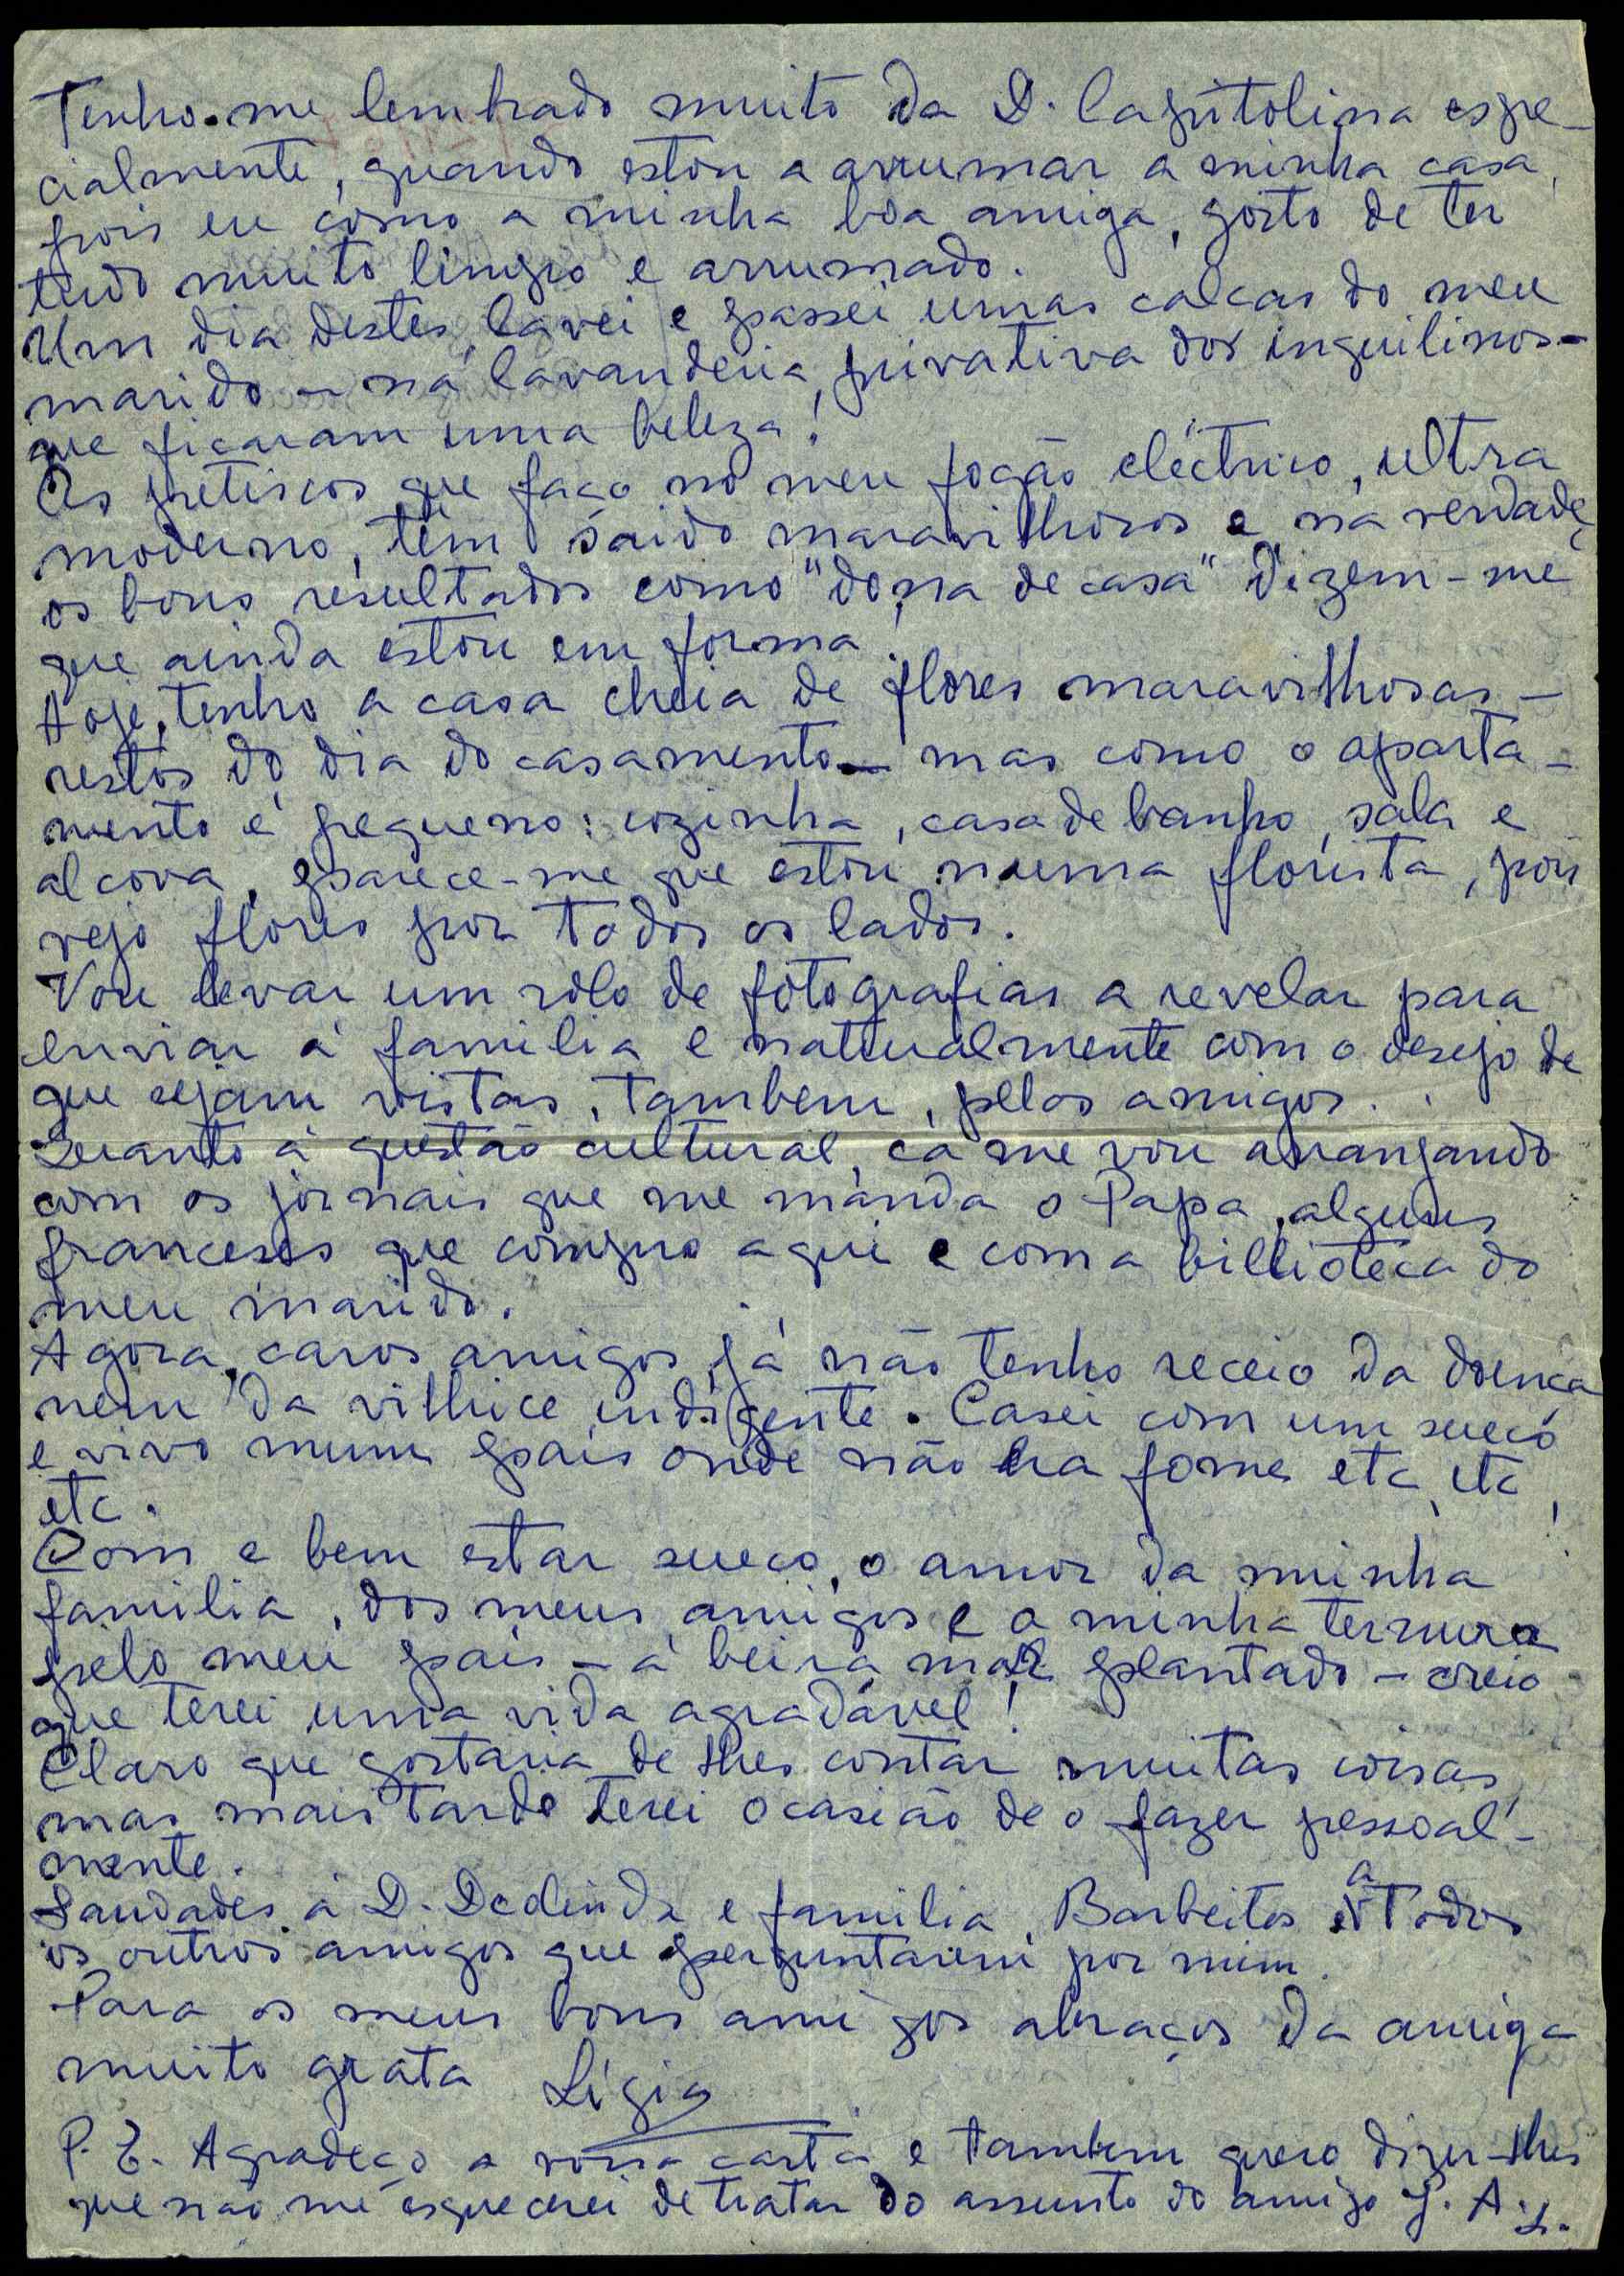 Tenho-me lembrado muito da D. Capitolina espe-
cialmente, quando estou a arrumar a minha casa,
pois eu como a minha boa amiga, gosto de ter
tudo muito limpo e arrumado.
Um dia destes lavei e passei umas calças do meu
marido - na lavanderia, privativa dos inquilinos -
que ficaram uma beleza!
Os petiscos que faço no meu fogão eléctrico, ultra
moderno, têm saido maravilhosos e na verdade,
os bons resultados como "dona de casa" dizem-me
que ainda estou em forma!
Hoje, tenho a casa cheia de flores maravilhosas -
restos do dia do casamento - mas como o aparta-
mento é pequeno: cozinha, casa de banho, sala e
alcova, parece-me que estou numa florista, pois
vejo flores por todos os lados.
Vou levar um rolo de fotografias a revelar para
enviar à familia e naturalmente com o desejo de
que sejam vistas, tambem, pelos amigos.
Quanto à questão cultural, cá me vou arranjando
com os jornais que me manda o Papa, alguns
franceses que compro aqui e com a biblioteca do
meu marido.
Agora, caros amigos, já não tenho receio da doença
nem da vilhice indigente. Casei com um sueco
e vivo num pais onde não ha fome etc, etc,
etc.
Com o bem estar sueco, o amor da minha
familia, dos meus amigos e a minha ternura
pelo meu pais - à beira mar plantado - creio
que terei uma vida agradável!
Claro que gostaria de lhes contar muitas coisas
mas mais tarde terei ocasião de o fazer pessoal-
mente.
Saudades à D. Deolinda e familia, Barbeitos a todos
os outros amigos que perguntarem por mim.
Para os meus bons amigos abraços da amiga
muito grata Lígia
P. E. Agradeço a vossa carta e tambem quero dizer-lhes
que não me esquecerei de tratar do assunto do amigo J. A. L.